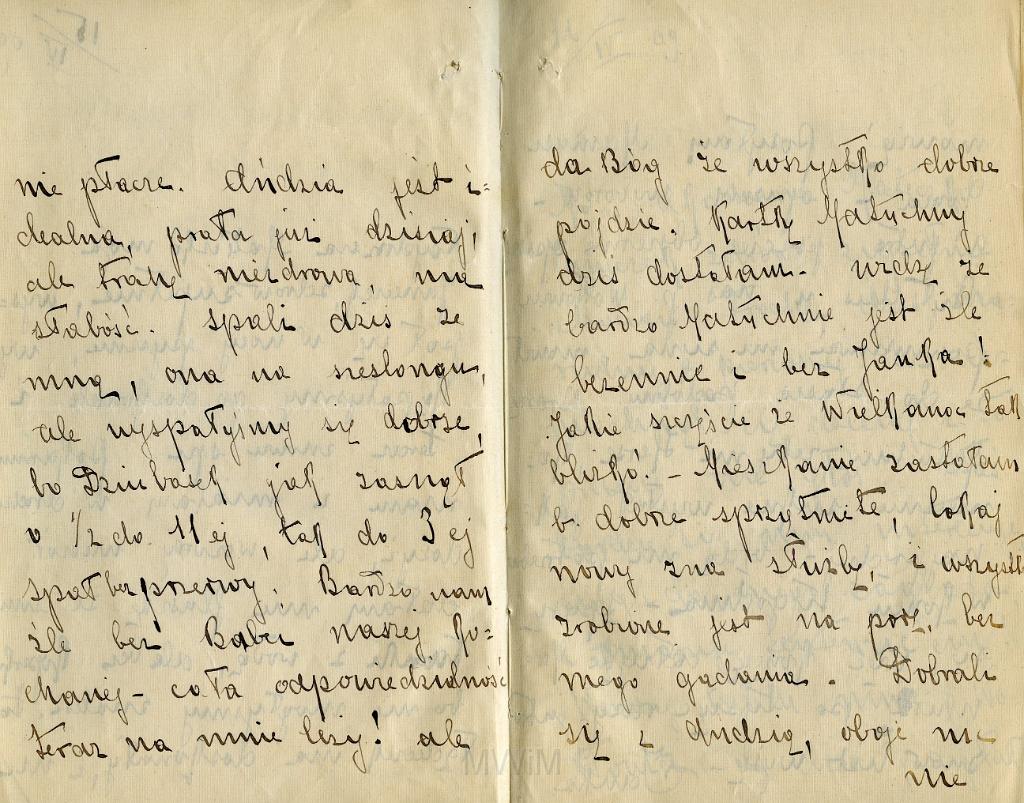 nie płacze. Andzia jest i=
dealna, prała już dzisiaj,
ale trochę niezdrowa, ma
słabość. Spali dziś ze
mną, ona na szeslongu,
ale wyspałyśmy się dobrze,
bo Dziubasek jak zasnął
o 1/2 do 11ej, tak do 3ej
spał bez przerwy. Bardzo nam
źle bez Babci naszej Ko=
chanej – cała odpowiedzialność
teraz na mnie leży! ale
da Bóg że wszystko dobrze
pójdzie. Kartkę Matuchny
dziś dostałam. Widzę że
bardzo Matuchnie jest źle
bezemnie i bez Janka!
Jakie szczęście że Wielkanoc tak
blizko. – Mieszkanie zastałam
b. dobrze sprzątnięte, lokaj
nowy zna służbę, i wszystk
zrobione jest na porę, bez
mego gadania. Dobrali
się z Andzią, oboje nic
nie
MWiM